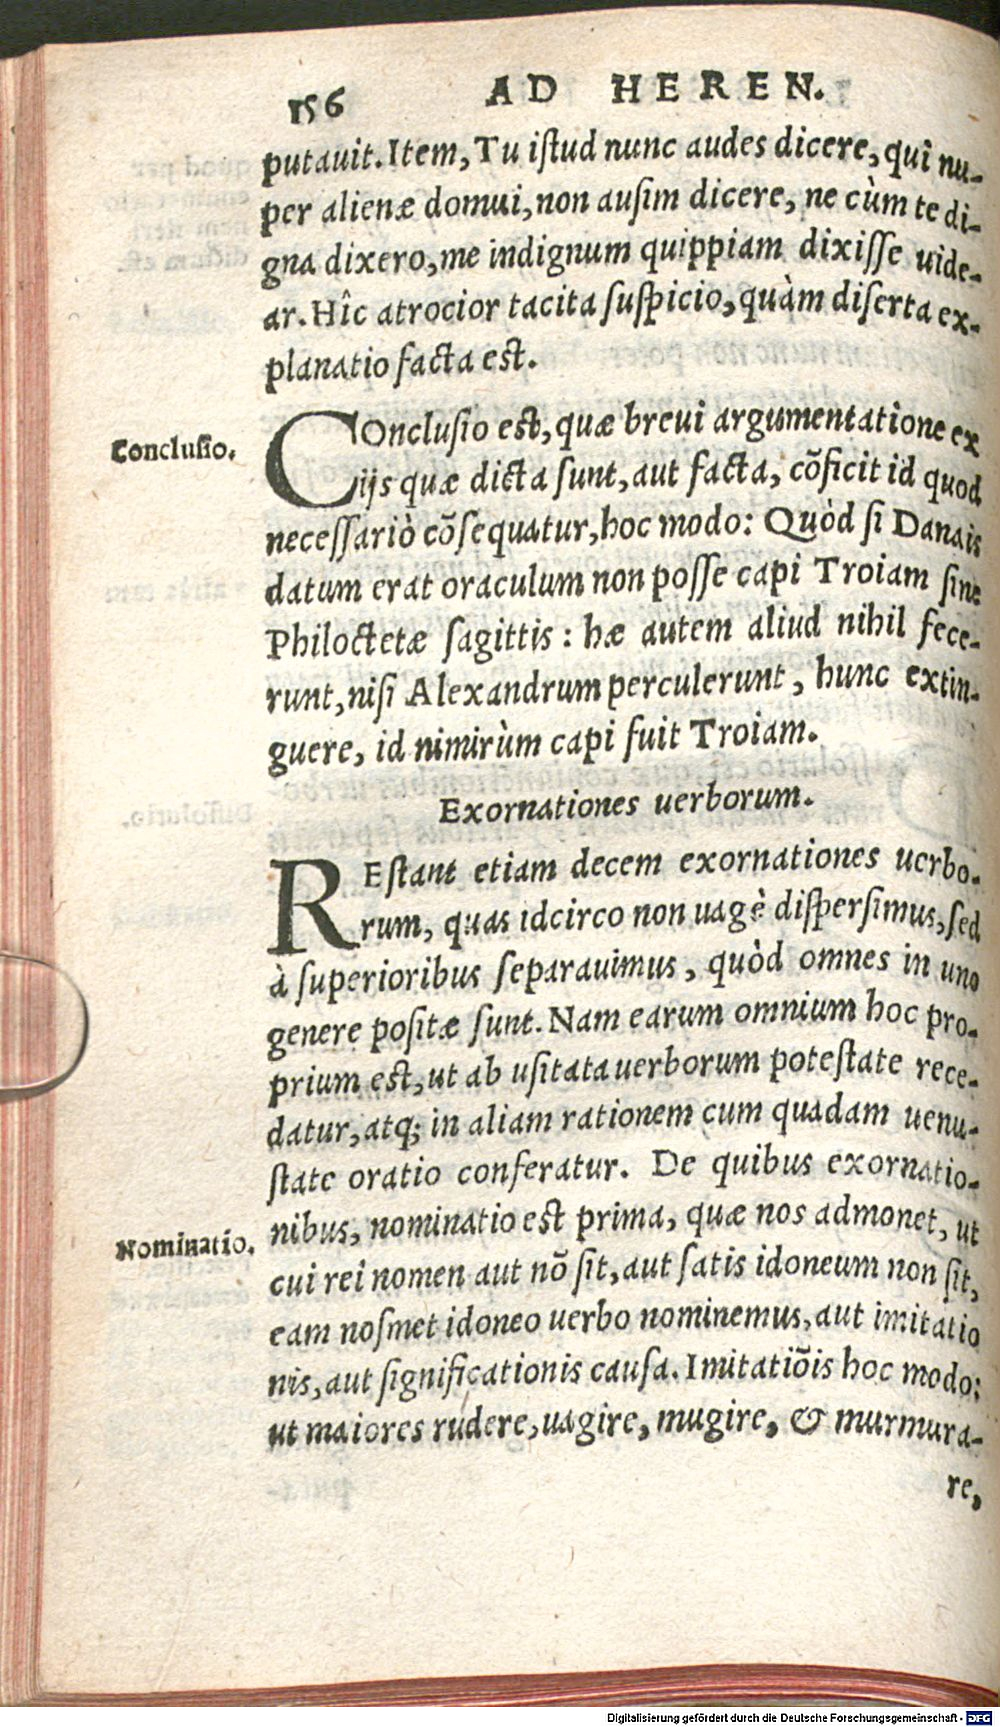 156 AD HEREN.
putauit. Item, Tu iſtud nunc audes dicere, qui nu-
per alienæ domui, non auſim dicere, ne cùm te di-
gna dixero, me indignum quippiam dixiſſe uide-
ar. Hîc atrocior tacita ſuſpicio, quàm diſerta ex-
planatio facta est.
Concluſio.
COncluſio est, quæ breui argumentatione ex
ijs quæ dicta ſunt, aut facta, cōficit id quod
neceſſariò cōſequatur, hoc modo: Quòd ſi Danais
datum erat oraculum non poſſe capi Troiam ſine
Philoctetæ ſagittis: hæ autem aliud nihil fece-
runt, niſi Alexandrum perculerunt, hunc extin-
guere, id nimirùm capi fuit Troiam.
Exornationes uerborum.
REſtant etiam decem exornationes uerbo-
rum, quas idcirco non uagè diſperſimus, ſed
à ſuperioribus ſeparauimus, quòd omnes in uno
genere poſitæ ſunt. Nam earum omnium hoc pro-
prium est, ut ab uſitata uerborum poteſtate rece-
datur, atq; in aliam rationem cum quadam uenu-
ſtate oratio conferatur. De quibus exornatio-
Nominatio.
nibus, nominatio est prima, quæ nos admonet, ut
cui rei nomen aut nō ſit, aut ſatis idoneum non ſit,
eam noſmet idoneo uerbo nominemus, aut imitatio
nis, aut ſignificationis cauſa. Imitatiōis hoc modo:
ut maiores rudere, uagire, mugire, & murmura-
re,
Digitalisierung gefördert durch die Deutsche Forschungsgemeinschaft - DFG